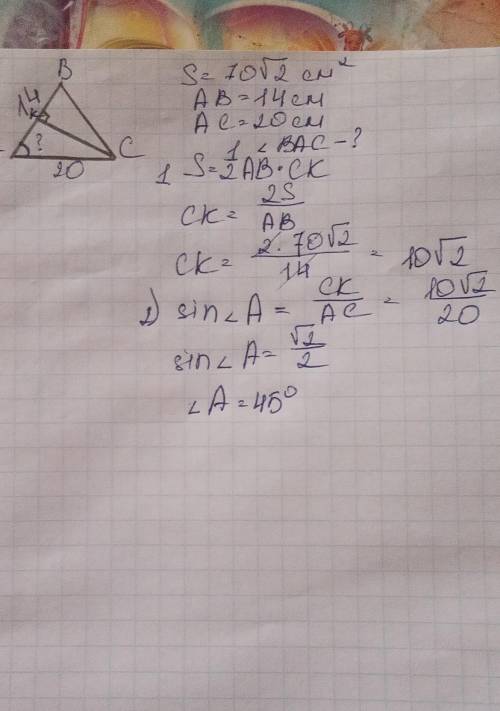 B
14
K
?
C
20
S = 70√2 см²
AB = 14 см
AC = 20 см
∠BAC - ?
1 S = 1/2 AB · CK
CK = 2S/AB
CK = 2·70√2/14 = 10√2
2) sin∠A = CK/AC = 10√2/20
sin∠A = √2/2
∠A = 45°